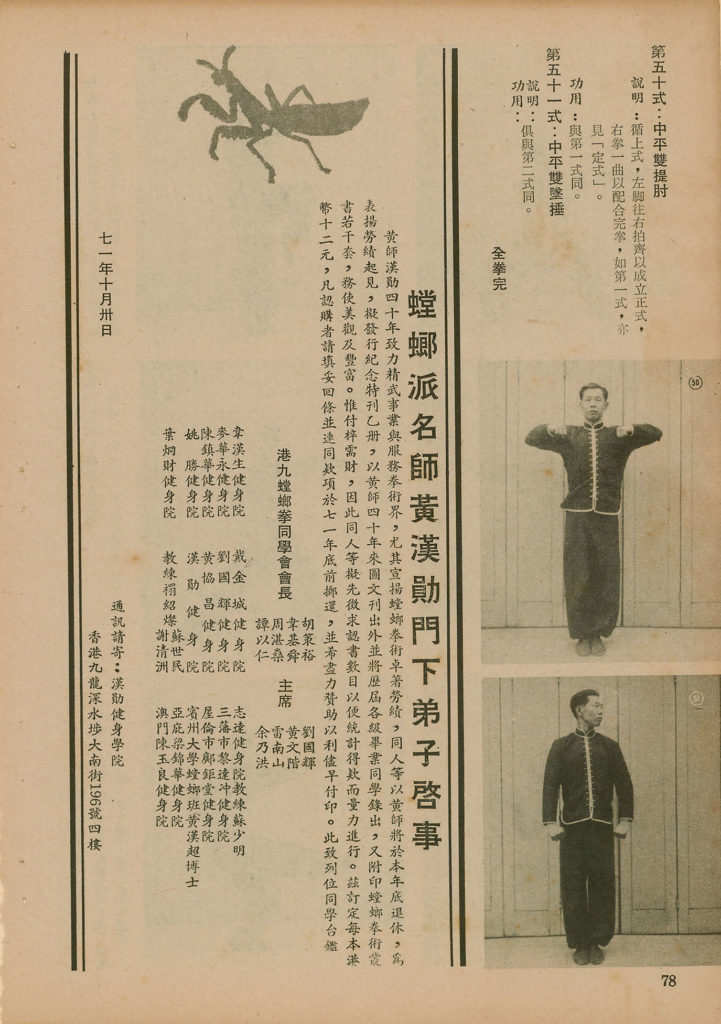 第五十式：中平雙提肘
說明：循上式，左脚往右拍齊以成立正式，
右拳一曲以配合完拳，如第一式，亦
見「定式」。
功用：與第一式同。
第五十一式：中平雙墜捶
說明：
功用：俱與第二式同。
全拳完
50
51
螳螂派名師黃漢勛門下弟子啓事
黃師漢勛四十年致力精武事業與服務拳術界，尤其宣揚螳螂拳術卓著勞績，同人等以黃師將於本年底退休，爲
表揚勞績起見，擬發行紀念特刊乙册，以黃師四十年來圖文刊出外並將歷屆各級畢業同學錄出，又附印螳螂拳術叢
書若干套，務使美觀及豐富。惟付梓需財，因此同人等擬先徵求認書數目以便統計得欵而量力進行。茲訂定每本港
幣十二元，凡認購者請填妥回條並連同欵項於七一年底前擲還，並希盡力贊助以利儘早付印。此致列位同學台鑑
港九螳螂拳同學會會長
胡策裕
韋基舜
周湛燊
譚以仁
主席
劉國輝
黃文階
雷南山
余乃洪
韋漢生健身院
戴金城健身院
志達健身院教練蘇少明
麥華永健身院
劉國輝健身院
三藩市黎達冲健身院
陳鎮華健身院
黃協昌健身院
屋倫市鄺鉅堂健身院
姚勝健身院
漢勛健身院
賓州大學螳螂班黃漢超博士
葉炯財健身院
教練禤紹燦
蘇世民
謝清洲
亞庇梁錦華健身院
澳門陳玉良健身院
通訊請寄：漢勛健身學院
香港九龍深水埗大南街196號四樓
七一年十月卅日
78